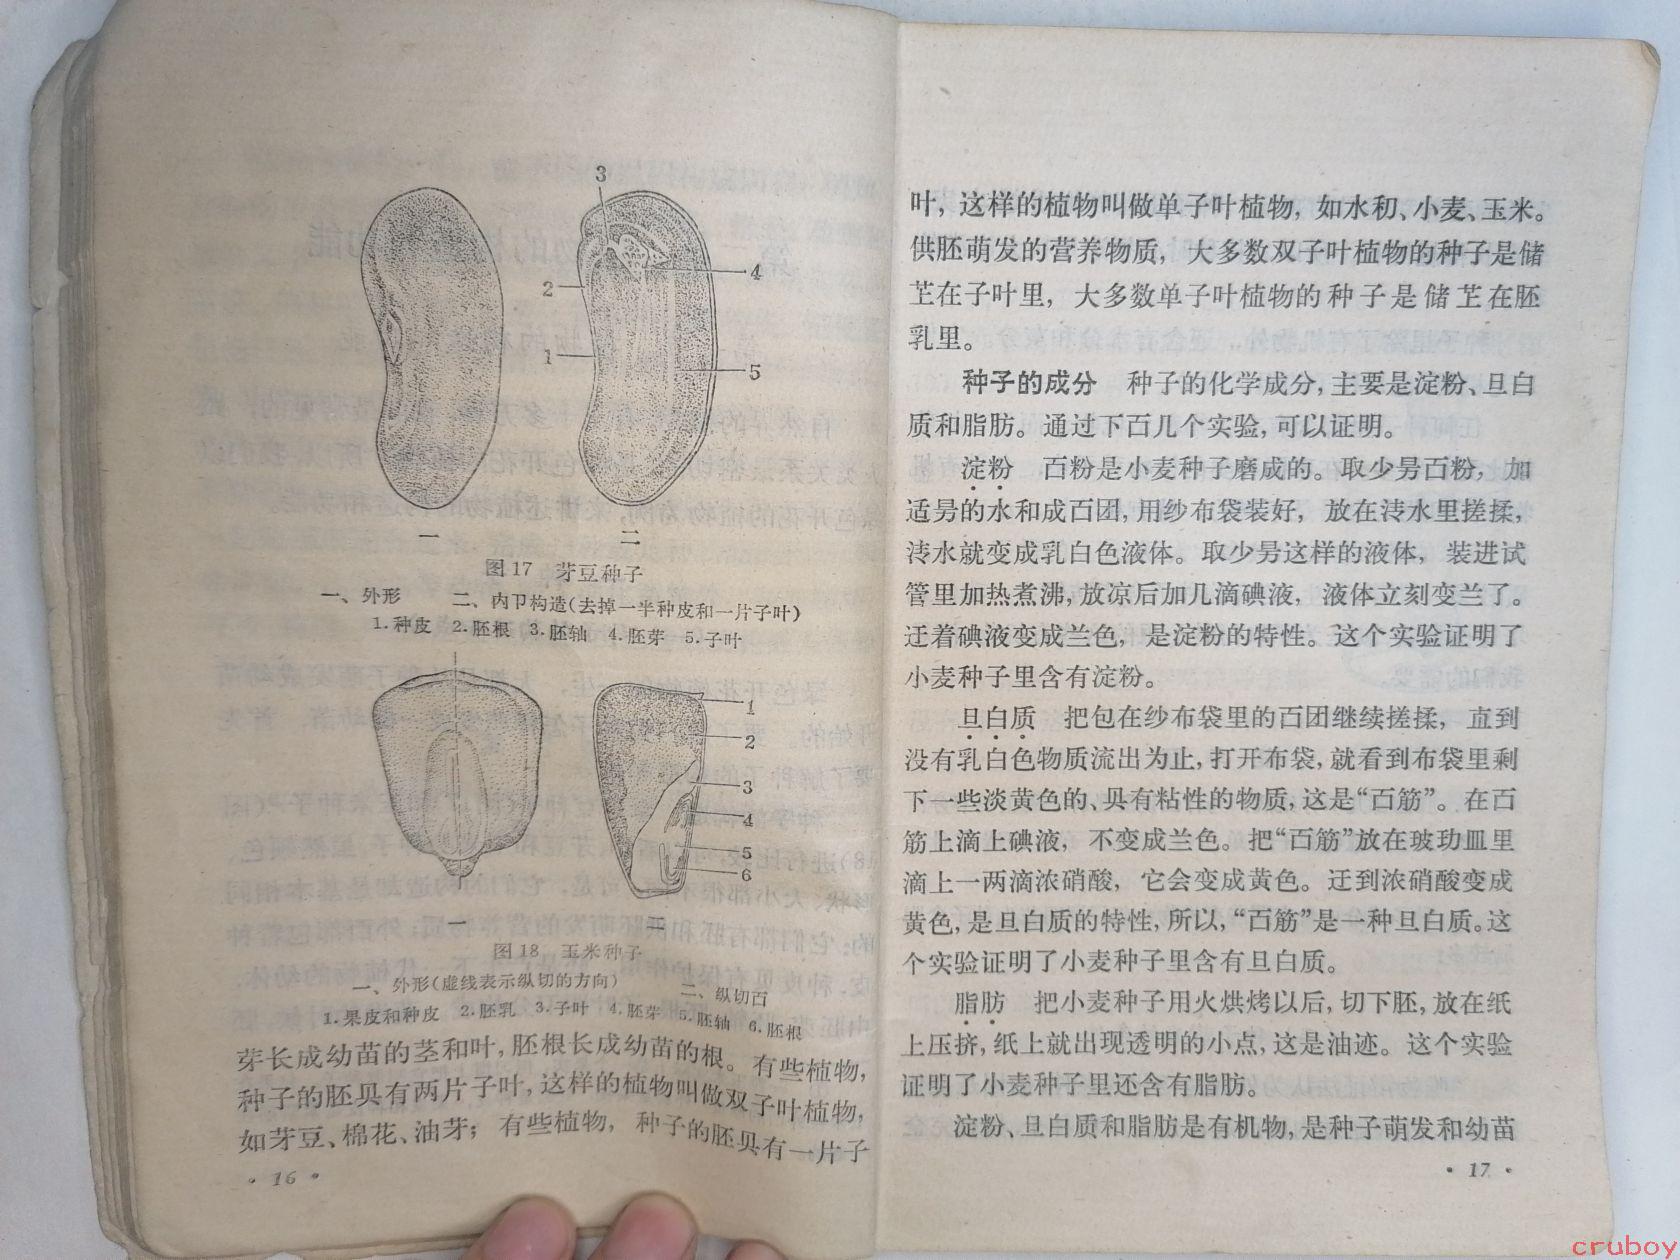 3
4
2
1
5
一
二
图17　菜豆种子
一、外形　二、内卩构造(去掉一半种皮和一片子叶)
1.种皮　2.胚根　3.胚轴　4.胚芽　5.子叶
1
2
3
4
5
6
一
二
图18　玉米种子
一、外形(虚线表示纵切的方向)　二、纵切面
1.果皮和种皮　2.胚乳　3.子叶　4.胚芽　5.胚轴　6.胚根
芽长成幼苗的茎和叶,胚根长成幼苗的根。有些植物,
种子的胚具有两片子叶,这样的植物叫做双子叶植物,
如菜豆、棉花、油菜；有些植物,种子的胚具有一片子
• 16 •
叶,这样的植物叫做单子叶植物,如水稻、小麦、玉米。
供胚萌发的营养物质,大多数双子叶植物的种子是储
藏在子叶里,大多数单子叶植物的种子是储藏在胚
乳里。
种子的成分　种子的化学成分,主要是淀粉、旦白
质和脂肪。通过下面几个实验,可以证明。
淀粉　面粉是小麦种子磨成的。取少量面粉,加
适量的水和成面团,用纱布袋装好,放在清水里搓揉,
清水就变成乳白色液体。取少量这样的液体,装进试
管里加热煮沸,放凉后加几滴碘液,液体立刻变兰了。
迂着碘液变成兰色,是淀粉的特性。这个实验证明了
小麦种子里含有淀粉。
旦白质　把包在纱布袋里的面团继续搓揉,直到
没有乳白色物质流出为止,打开布袋,就看到布袋里剩
下一些淡黄色的、具有粘性的物质,这是“面筋”。在面
筋上滴上碘液,不变成兰色。把“面筋”放在玻璃皿里
滴上一两滴浓硝酸,它会变成黄色。迂到浓硝酸变成
黄色,是旦白质的特性,所以,“面筋”是一种旦白质。这
个实验证明了小麦种子里含有旦白质。
脂肪　把小麦种子用火烘烤以后,切下胚,放在纸
上压挤,纸上就出现透明的小点,这是油迹。这个实验
证明了小麦种子里还含有脂肪。
淀粉、旦白质和脂肪是有机物,是种子萌发和幼苗
• 17 •
cruboy